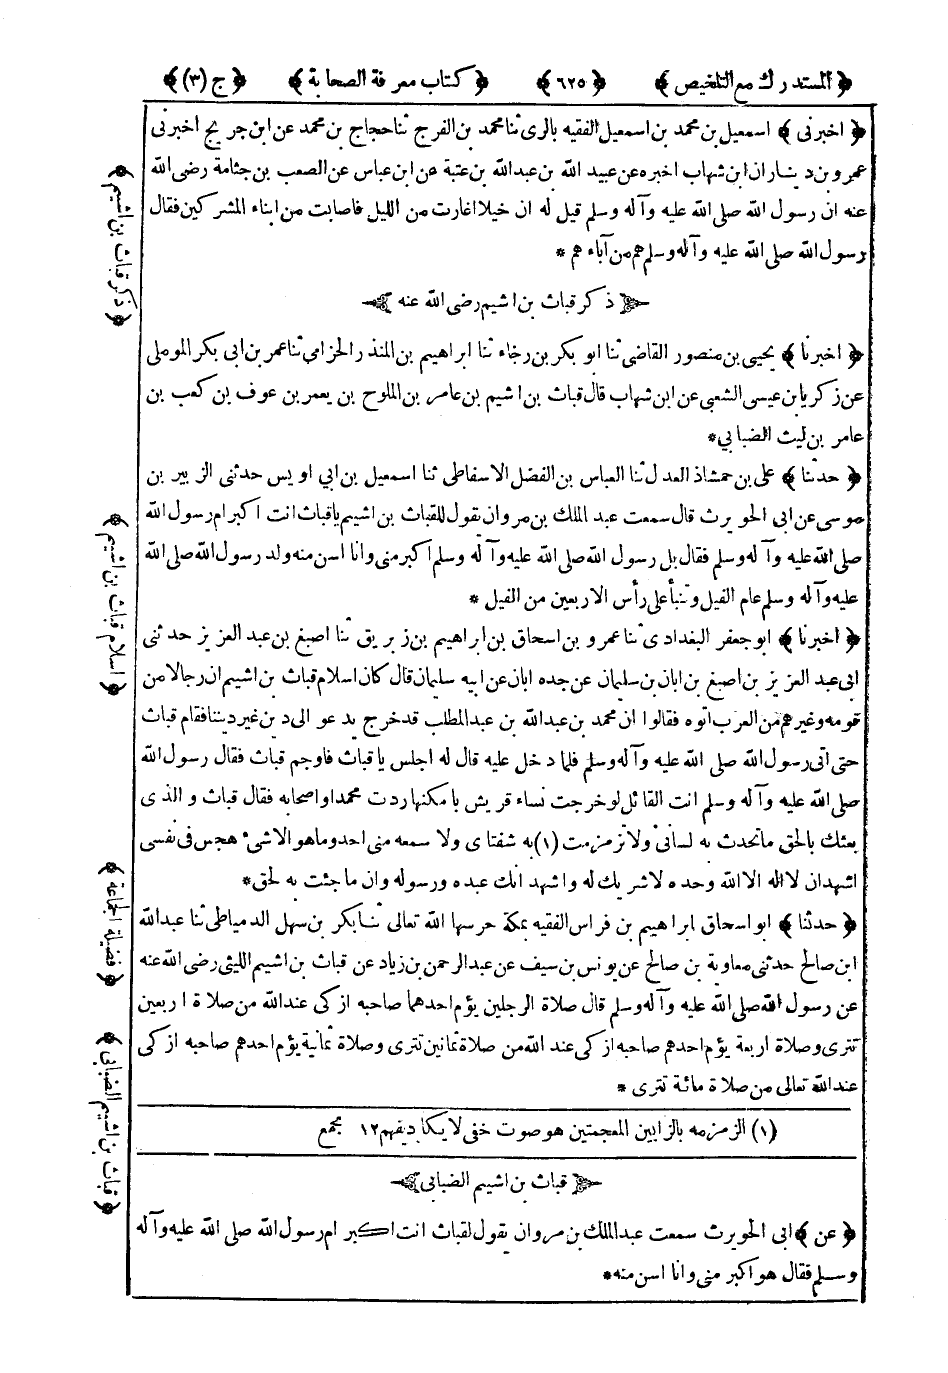 ﴿ المستدرك مع التلخيص ﴾ ﴿ ٦٢٥ ﴾ ﴿ كتاب معرفة الصحابة ﴾ ﴿ ج (٣) ﴾
﴿ اخبرنى ﴾ اسمعيل بن محمد بن اسمعيل الفقيه بالرى ثنا محمد بن الفرج ثنا حجاج بن محمد عن ابن جريج اخبرنى
عمرو بن دينار ان ابن شهاب اخبره عن عبيد الله بن عبدالله بن عتبة عن ابن عباس عن الصعب بن جثامة رضى الله
عنه ان رسول الله صلى الله عليه وآله وسلم قيل له ان خيلا اغارت من الليل فاصابت من ابناء المشركين فقال
رسول الله صلى الله عليه وآله وسلم هم من آباءهم *
ذكر قباث بن اشيم رضى الله عنه
﴿ اخبرنا ﴾ يحيى بن منصور القاضى ثنا ابو بكر بن رجاء ثنا ابراهيم بن المنذر الحزامى ثنا عمر بن ابى بكر الموملى
عن زكريا بن عيسى الشعبى عن ابن شهاب قال قباث بن اشيم بن عامر بن الملوح بن يعمر بن عوف بن كعب بن
عامر بن ليث الضبابي *
﴿ حدثنا ﴾ على بن حمشاذ العدل ثنا العباس بن الفضل الاسفاطى ثنا اسمعيل بن ابي اويس حدثنى الزبير بن
موسى عن ابى الحويرث قال سمعت عبد الملك بن مروان يقول للقباث بن اشيم يا قباث انت اكبر ام رسول الله
صلى الله عليه وآله وسلم فقال بل رسول الله صلى الله عليه وآله وسلم اكبر منى وانا اسن منه ولد رسول الله صلى الله
عليه وآله وسلم عام الفيل وتنبأ على رأس الاربعين من الفيل *
﴿ اخبرنا ﴾ ابو جعفر البغدادى ثنا عمرو بن اسحاق بن ابراهيم بن زبريق ثنا اصبغ بن عبد العزيز حدثنى
ابى عبد العزيز بن اصبغ بن ابان بن سليمان عن جده ابان عن ابيه سليمان قال كان اسلام قباث بن اشيم ان رجالا من
قومه وغيرهم من العرب اتوه فقالوا ان محمد بن عبدالله بن عبدالمطلب قد خرج يدعو الى دين غير ديننا فقام قباث
حتى اتى رسول الله صلى الله عليه وآله وسلم فلما دخل عليه قال له اجلس يا قباث فاوجم قباث فقال رسول الله
صلى الله عليه وآله وسلم انت القائل لو خرجت نساء قريش باكمتها ردت محمدا واصحابه فقال قباث والذى
بعثك بالحق ما تحدث به لسانى ولا تزمزمت (١) به شفتاى ولا سمعه منى احد وما هو الا شىء هجس فى نفسى
اشهد ان لا اله الا الله وحده لا شريك له واشهد انك عبده ورسوله وان ما جئت به لحق *
﴿ حدثنا ﴾ ابو اسحاق ابراهيم بن فراس الفقيه بمكة حرسها الله تعالى ثنا بكر بن سهل الدمياطى ثنا عبدالله
ابن صالح حدثنى معاوية بن صالح عن يونس بن سيف عن عبدالرحمن بن زياد عن قباث بن اشيم الليثى رضى الله عنه
عن رسول الله صلى الله عليه وآله وسلم قال صلاة الرجلين يؤم احدهما صاحبه ازكى عند الله من صلاة اربعين
تترى وصلاة اربعة يؤم احدهم صاحبه ازكى عند الله من صلاة ثمانين تترى وصلاة ثمانية يؤم احدهم صاحبه ازكى
عند الله تعالى من صلاة مائة تترى *
(١) الزمزمه بالزايين المعجمتين هو صوت خفى لا يكاد يفهم ١٢ مجمع
قباث بن اشيم الضبابى
﴿ عن ﴾ ابى الحويرث سمعت عبدالملك بن مروان يقول لقباث انت اكبر ام رسول الله صلى الله عليه وآله
وسلم فقال هو اكبر منى وانا اسن منه *
﴿ ذكر قباث بن اشيم ﴾
﴿ اسلام قباث بن اشيم ﴾
﴿ فضيلة الجماعة ﴾
﴿ قباث بن اشيم الضبابى ﴾